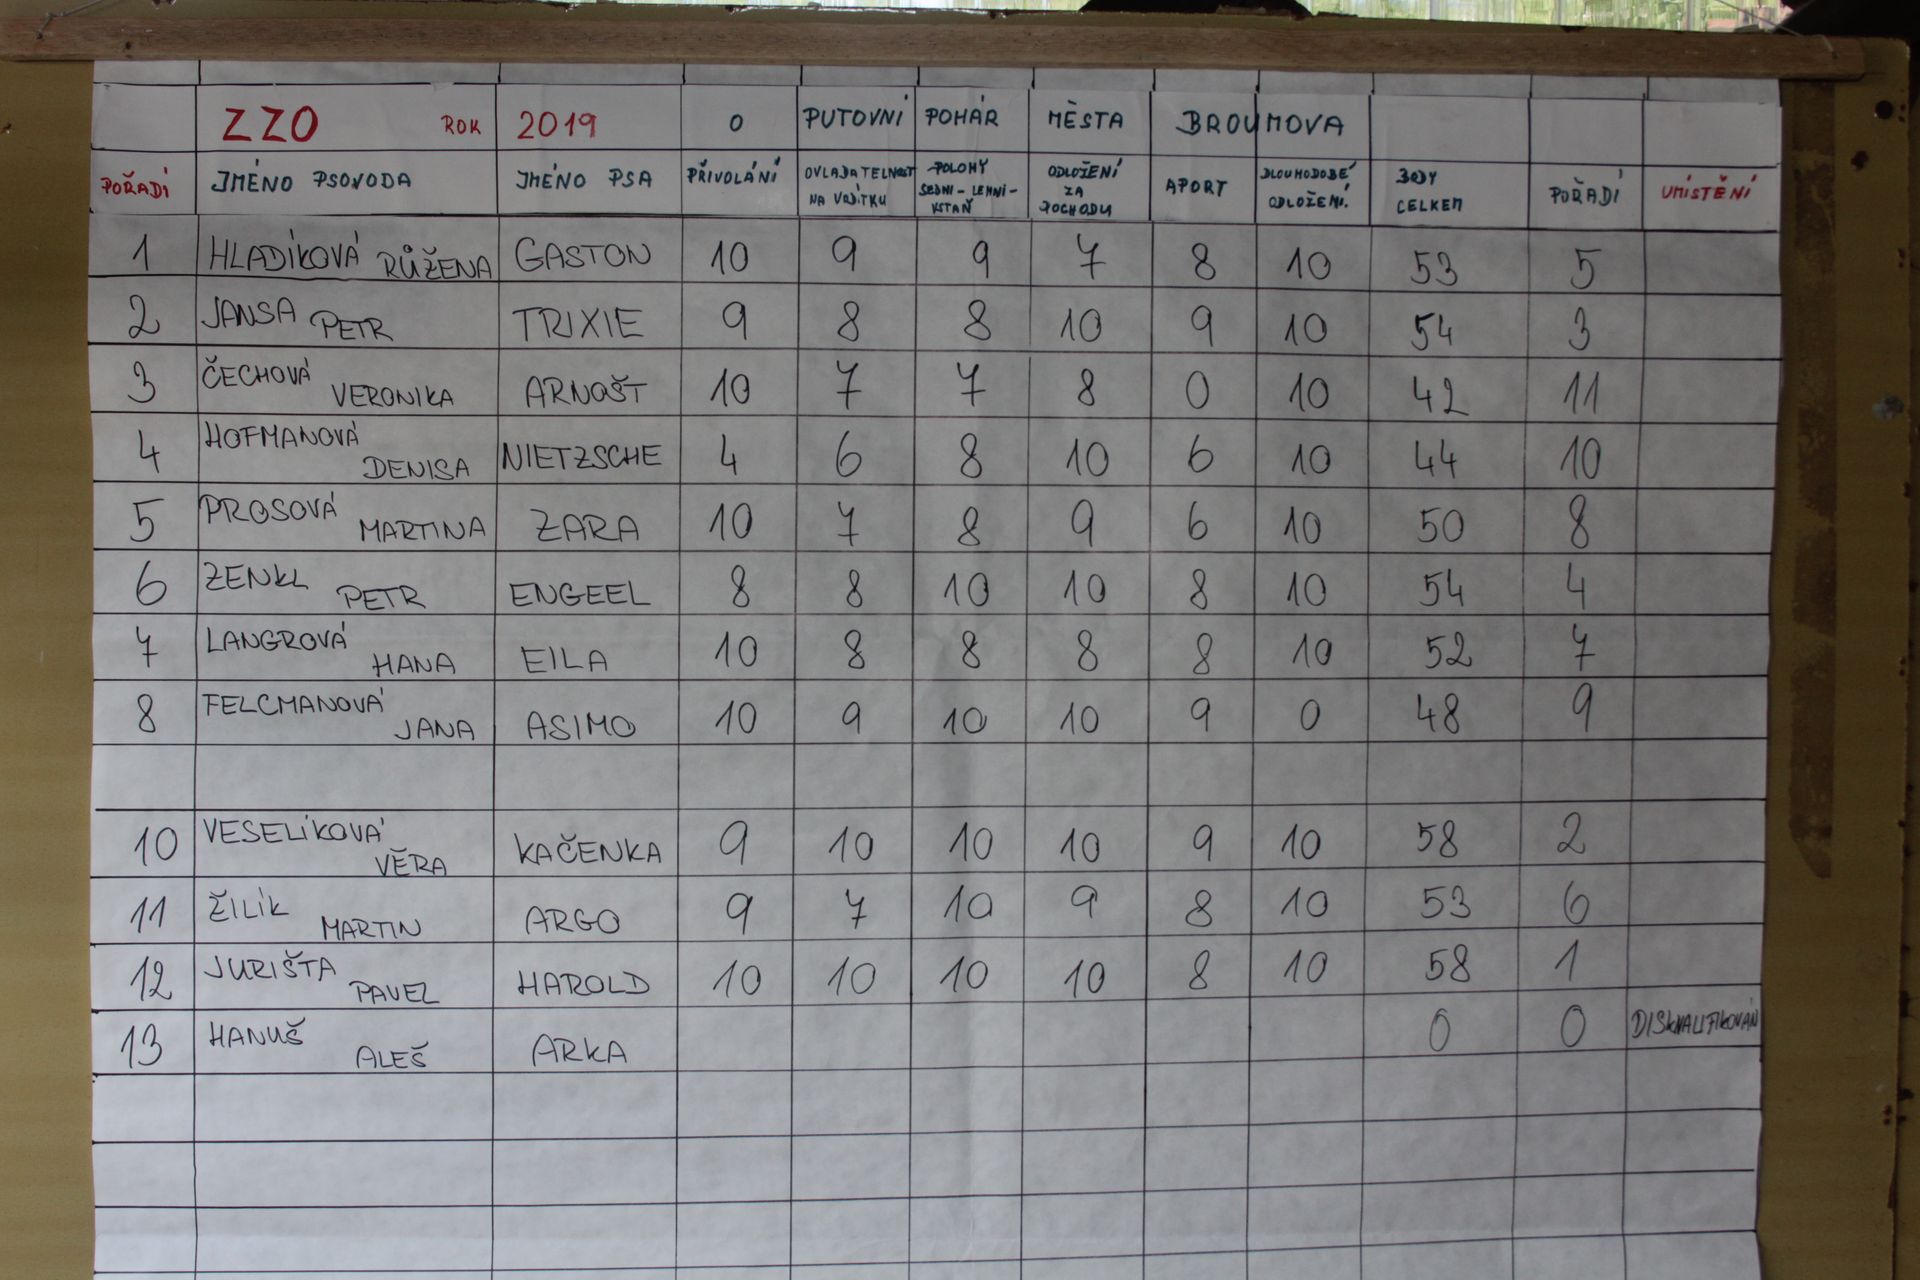 ZZO ROK 2019 O PUTOVNÍ POHÁR MĚSTA BROUMOVA
POŘADÍ JMÉNO PSOVODA JMÉNO PSA PŘIVOLÁNÍ OVLADATELNOST NA VODÍTKU POLOHY SEDNI-LEHNI-VSTAŇ ODLOŽENÍ ZA POCHODU APORT DLOUHODOBÉ ODLOŽENÍ. BODY CELKEM POŘADÍ UMÍSTĚNÍ
1 HLADÍKOVÁ RŮŽENA GASTON 10 9 9 7 8 10 53 5
2 JANSA PETR TRIXIE 9 8 8 10 9 10 54 3
3 ČECHOVÁ VERONIKA ARNOŠT 10 7 7 8 0 10 42 11
4 HOFMANOVÁ DENISA NIETZSCHE 4 6 8 10 6 10 44 10
5 PROSOVÁ MARTINA ZARA 10 7 8 9 6 10 50 8
6 ZENKL PETR ENGEEL 8 8 10 10 8 10 54 4
7 LANGROVÁ HANA EILA 10 8 8 8 8 10 52 7
8 FELCMANOVÁ JANA ASIMO 10 9 10 10 9 0 48 9
10 VESELÍKOVÁ VĚRA KAČENKA 9 10 10 10 9 10 58 2
11 ŽILÍK MARTIN ARGO 9 7 10 9 8 10 53 6
12 JURIŠTA PAVEL HAROLD 10 10 10 10 8 10 58 1
13 HANUŠ ALEŠ ARKA 0 0 DISKVALIFIKOVÁN